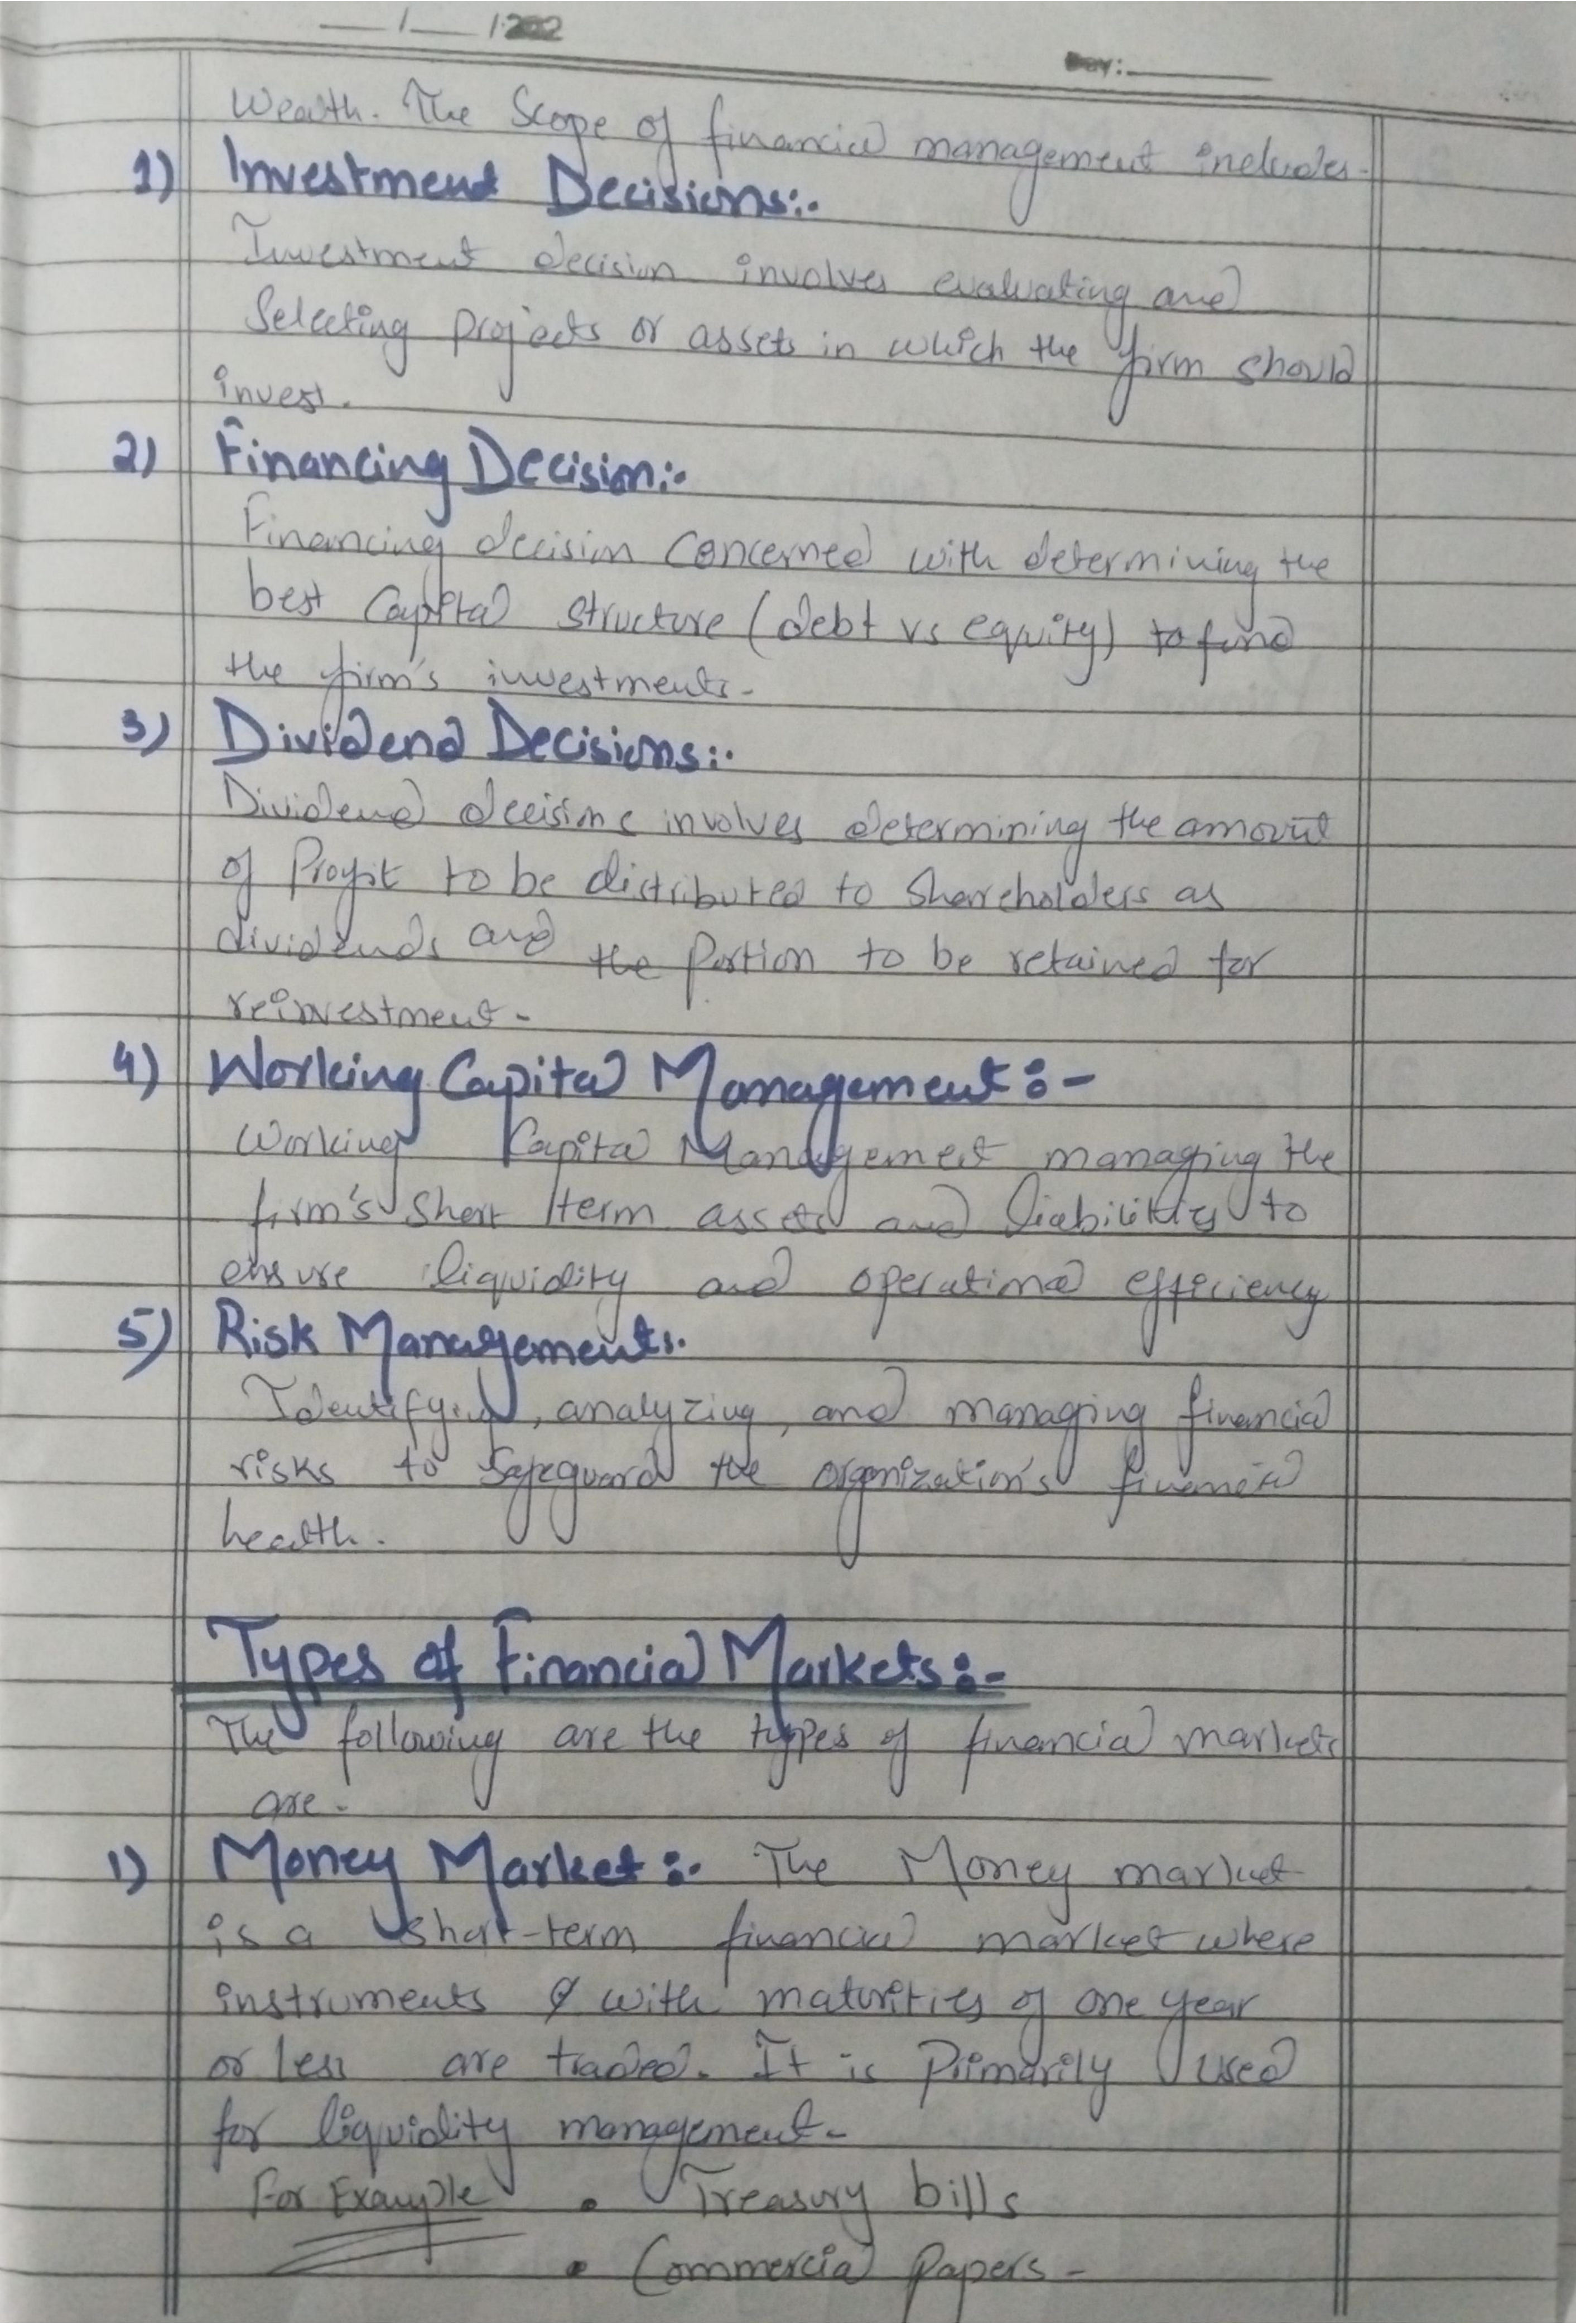 __/__/202
Day:____
Wealth. The Scope of financial management includes.
1) Investment Decisions:-
Investment decision involves evaluating and
Selecting projects or assets in which the firm should
invest.
2) Financing Decision:-
Financing decision concerned with determining the
best Capital structure (debt vs equity) to fund
the firm's investments.
3) Dividend Decisions:-
Dividend decisions involves determining the amount
of Profit to be distributed to Shareholders as
dividends and the Portion to be retained for
reinvestment.
4) Working Capital Management:-
Working Capital Management managing the
firm's Short term assets and liabilities to
ensure liquidity and operational efficiency
5) Risk Management:-
Identifying, analyzing, and managing financial
risks to Safeguard the organization's financial
health.
Types of Financial Markets:-
The following are the types of financial markets
are.
1) Money Market:- The Money market
is a short-term financial market where
instruments with maturities of one year
or less are traded. It is Primarily used
for liquidity management.
For Example • Treasury bills
• Commercial Papers.